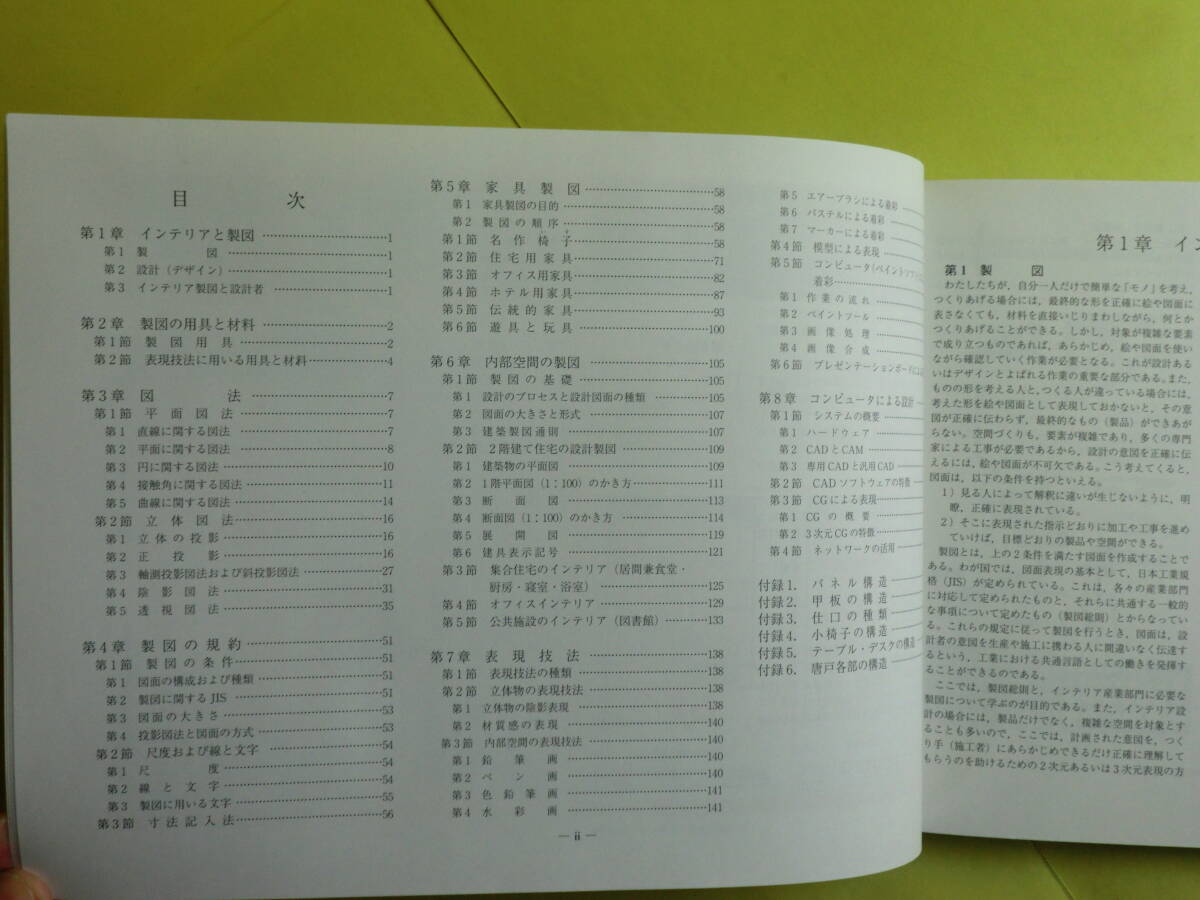 目　次
第1章 インテリアと製図 ……1
第1 製　　図 ……1
第2 設計（デザイン）……1
第3 インテリア製図と設計者 ……1
第2章 製図の用具と材料 ……2
第1節 製図用具 ……2
第2節 表現技法に用いる用具と材料 ……4
第3章 図　　法 ……7
第1節 平面図法 ……7
第1 直線に関する図法 ……7
第2 平面に関する図法 ……8
第3 円に関する図法 ……10
第4 接触角に関する図法 ……11
第5 曲線に関する図法 ……14
第2節 立体図法 ……16
第1 立体の投影 ……16
第2 正投影 ……16
第3 軸測投影図法および斜投影図法 ……27
第4 陰影図法 ……31
第5 透視図法 ……35
第4章 製図の規約 ……51
第1節 製図の条件 ……51
第1 図面の構成および種類 ……51
第2 製図に関するJIS ……51
第3 図面の大きさ ……53
第4 投影図法と図面の方式 ……53
第2節 尺度および線と文字 ……54
第1 尺　　度 ……54
第2 線と文字 ……54
第3 製図に用いる文字 ……55
第3節 寸法記入法 ……56
第5章 家具製図 ……58
第1 家具製図の目的 ……58
第2 製図の順序 ……58
第1節 名作椅子 ……58
第2節 住宅用家具 ……71
第3節 オフィス用家具 ……82
第4節 ホテル用家具 ……87
第5節 伝統的家具 ……93
第6節 遊具と玩具 ……100
第6章 内部空間の製図 ……105
第1節 製図の基礎 ……105
第1 設計のプロセスと設計図面の種類 ……105
第2 図面の大きさと形式 ……107
第3 建築製図通則 ……107
第2節 2階建て住宅の設計製図 ……109
第1 建築物の平面図 ……109
第2 1階平面図（1：100）のかき方 ……111
第3 断面図 ……113
第4 断面図（1：100）のかき方 ……114
第5 展開図 ……119
第6 建具表示記号 ……121
第3節 集合住宅のインテリア（居間兼食堂・
厨房・寝室・浴室）……125
第4節 オフィスインテリア ……129
第5節 公共施設のインテリア（図書館）……133
第7章 表現技法 ……138
第1節 表現技法の種類 ……138
第2節 立体物の表現技法 ……138
第1 立体物の陰影表現 ……138
第2 材質感の表現 ……140
第3節 内部空間の表現技法 ……140
第1 鉛筆画 ……140
第2 ペン画 ……140
第3 色鉛筆画 ……141
第4 水彩画 ……141
第5 エアーブラシによる着彩
第6 パステルによる着彩
第7 マーカーによる着彩
第4節 模型による表現
第5節 コンピュータ（ペイントソフト
着彩
第1 作業の流れ
第2 ペイントツール
第3 画像処理
第4 画像合成
第6節 プレゼンテーションボードに
第8章 コンピュータによる設計
第1節 システムの概要
第1 ハードウェア
第2 CADとCAM
第3 専用CADと汎用CAD
第2節 CADソフトウェアの特徴
第3節 CGによる表現
第1 CGの概要
第2 3次元CGの特徴
第4節 ネットワークの活用
付録1. パネル構造
付録2. 甲板の構造
付録3. 仕口の種類
付録4. 小椅子の構造
付録5. テーブル・デスクの構造
付録6. 唐戸各部の構造
― ii ―
第1章 イン
第1 製　　図
わたしたちが，自分一人だけで簡単な「モノ」を考え，
つくりあげる場合には，最終的な形を正確に絵や図面に
表さなくても，材料を直接いじりまわしながら，何とか
つくりあげることができる。しかし，対象が複雑な要素
で成り立つものであれば，あらかじめ，絵や図面を使い
ながら確認していく作業が必要となる。これが設計ある
いはデザインとよばれる作業の重要な部分である。また，
ものの形を考える人と，つくる人が違っている場合には，
考えた形を絵や図面として表現しておかないと，その意
図が正確に伝わらず，最終的なもの（製品）ができあが
らない。空間づくりも，要素が複雑であり，多くの専門
家による工事が必要であるから，設計の意図を正確に伝
えるには，絵や図面が不可欠である。こう考えてくると，
図面は，以下の条件を持つといえる。
1）見る人によって解釈に違いが生じないように，明
瞭，正確に表現されている。
2）そこに表現された指示どおりに加工や工事を進め
ていけば，目標どおりの製品や空間ができる。
製図とは，上の2条件を満たす図面を作成することで
ある。わが国では，図面表現の基本として，日本工業規
格（JIS）が定められている。これは，各々の産業部門
に対応して定められたものと，それらに共通する一般的
な事項について定めたもの（製図総則）とからなってい
る。これらの規定に従って製図を行うとき，図面は，設
計者の意図を生産や施工に携わる人に間違いなく伝達す
るという，工業における共通言語としての働きを発揮す
ることができるのである。
ここでは，製図総則と，インテリア産業部門に必要な
製図について学ぶのが目的である。また，インテリア設
計の場合には，製品だけでなく，複雑な空間を対象とす
ることも多いので，ここでは，計画された意図を，つく
り手（施工者）にあらかじめできるだけ正確に理解して
もらうのを助けるための2次元あるいは3次元表現の方